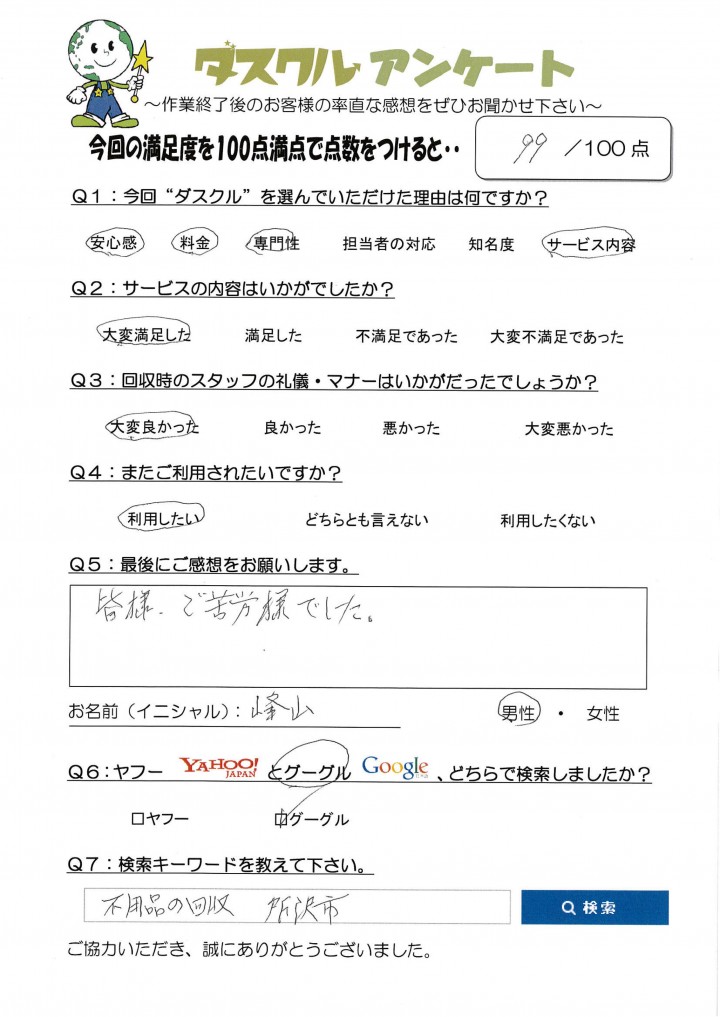 ダスクル アンケート
～作業終了後のお客様の率直な感想をぜひお聞かせ下さい～
今回の満足度を100点満点で点数をつけると・・ 99 /100 点
Q1：今回“ダスクル”を選んでいただけた理由は何ですか？
安心感 料金 専門性 担当者の対応 知名度 サービス内容
Q2：サービスの内容はいかがでしたか？
大変満足した 満足した 不満足であった 大変不満足であった
Q3：回収時のスタッフの礼儀・マナーはいかがだったでしょうか？
大変良かった 良かった 悪かった 大変悪かった
Q4：またご利用されたいですか？
利用したい どちらとも言えない 利用したくない
Q5：最後にご感想をお願いします。
皆様、ご苦労様でした。
お名前（イニシャル）：峰山 男性 ・ 女性
Q6：ヤフー YAHOO! JAPAN とグーグル Google 、どちらで検索しましたか？
□ヤフー □グーグル
Q7：検索キーワードを教えて下さい。
不用品の回収 所沢市 検索
ご協力いただき、誠にありがとうございました。